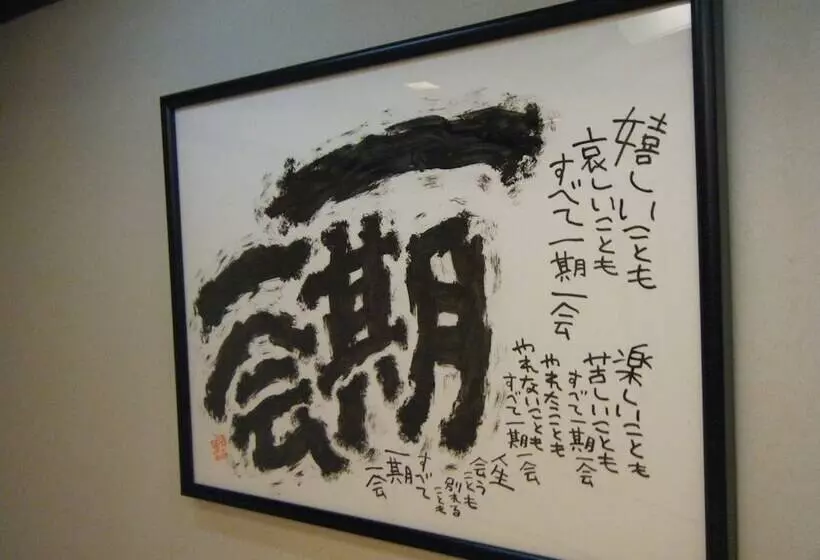 一期一会
嬉しいことも
哀しいことも
すべて一期一会
楽しいことも
苦しいことも
すべて一期一会
やれたことも
やれないことも
すべて一期一会
人生
会うことも
別れることも
すべて
一期
一会